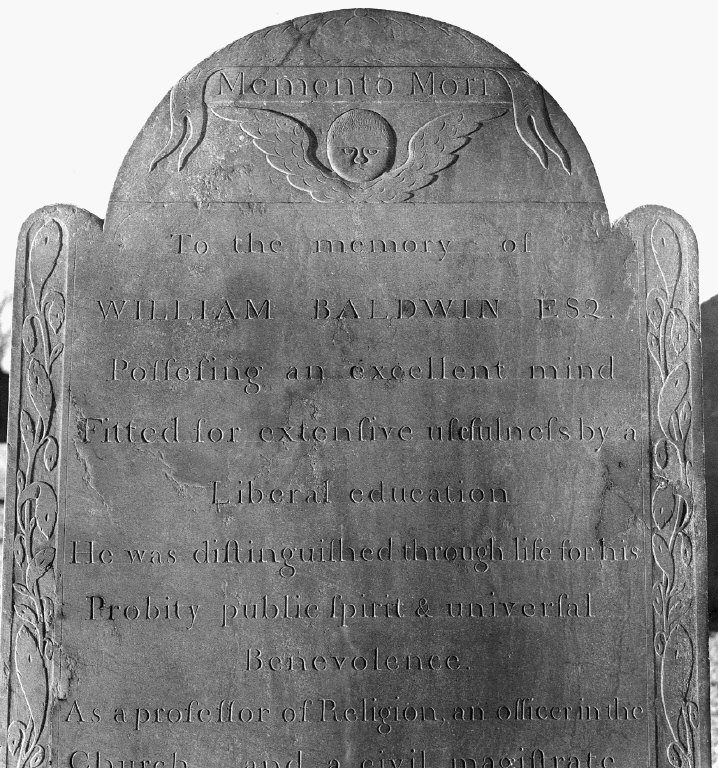 Memento Mori
To the memory of
WILLIAM BALDWIN ESQ.
Poſſeſing an excellent mind
Fitted for extenſive uſefulneſs by a
Liberal education
He was diſtinguiſhed through life for his
Probity public ſpirit & univerſal
Benevolence.
As a profeſſor of Religion, an officer in the
Church and a civil magiſtrate